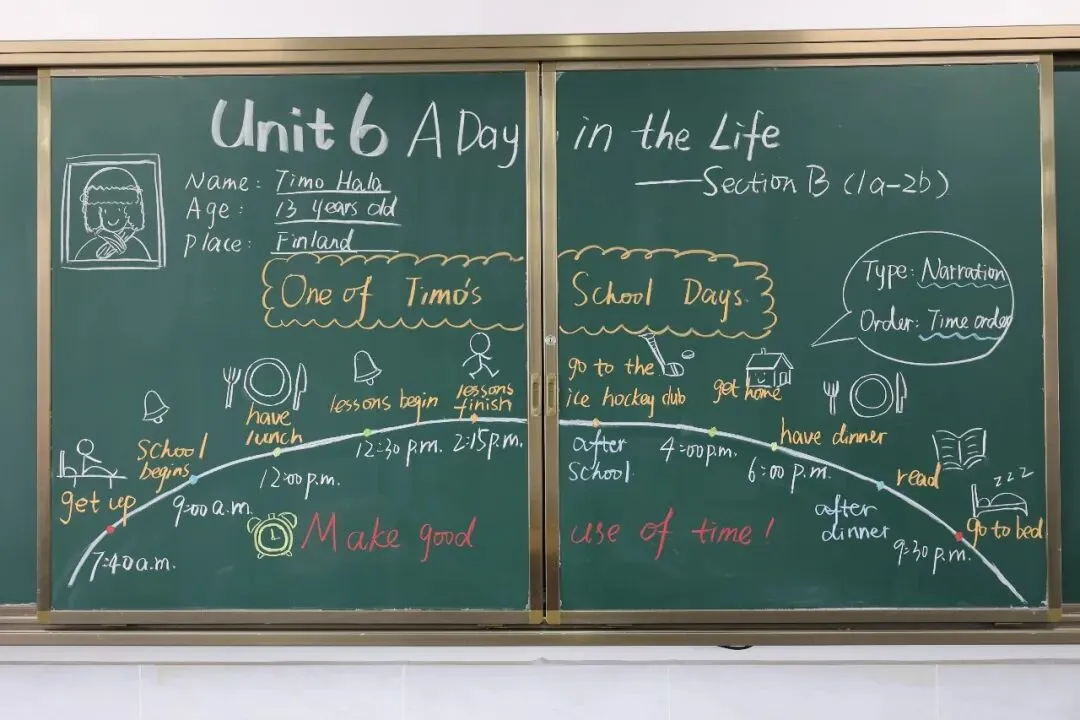 Unit 6 A Day in the Life
——Section B (1a-2b)
Name: Timo Hala
Age: 13 years old
Place: Finland
Type: Narration
Order: Time order
One of Timo's School Days
get up
7:40 a.m.
School begins
9:00 a.m.
have lunch
12:00 p.m.
lessons begin
12:30 p.m.
lessons finish
2:15 p.m.
go to the
ice hockey club
after
school
get home
4:00 p.m.
have dinner
6:00 p.m.
read
after
dinner
zzz
go to bed
9:30 p.m.
Make good use of time!